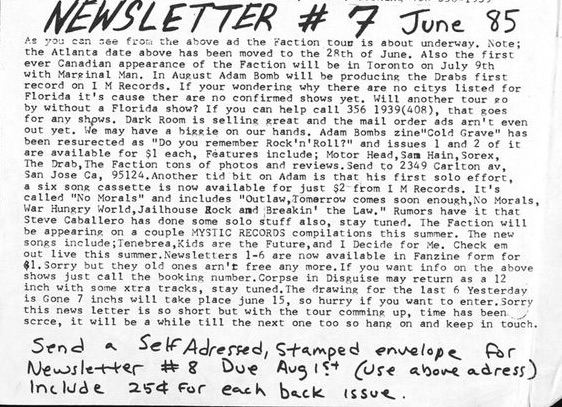 NEWSLETTER # 7 June 85
As you can see from the above ad the Faction tour is about underway. Note;
the Atlanta date above has been moved to the 28th of June. Also the first
ever Canadian appearance of the Faction will be in Toronto on July 9th
with Marginal Man. In August Adam Bomb will be producing the Drabs first
record on I M Records. If your wondering why there are no citys listed for
Florida it's cause ther are no confirmed shows yet. Will another tour go
by without a Florida show? If you can help call 356 1939(408), that goes
for any shows. Dark Room is selling great and the mail order ads arn't even
out yet. We may have a biggie on our hands. Adam Bombs zine"Cold Grave" has
been resurected as "Do you remember Rock'n'Roll?" and issues 1 and 2 of it
are available for $1 each, Features include; Motor Head,Sam Hain,Sorex,
The Drab,The Faction tons of photos and reviews.Send to 2349 Carlton av,
San Jose Ca, 95124.Another tid bit on Adam is that his first solo effort,
a six song cassette is now available for just $2 from I M Records. It's
called "No Morals" and includes "Outlaw,Tomorrow comes soon enough,No Morals,
War Hungry World,Jailhouse Rock and Breakin' the Law." Rumors have it that
Steve Caballero has done some solo stuff also, stay tuned. The Faction will
be appearing on a couple MYSTIC RECORDS compilations this summer. The new
songs include;Tenebrea,Kids are the Future,and I Decide for Me. Check em
out live this summer.Newsletters 1-6 are now available in Fanzine form for
$1.Sorry but they old ones arn't free any more.If you want info on the above
shows just call the booking number.Corpse in Disguise may return as a 12
inch with some xtra tracks, stay tuned.The drawing for the last 6 Yesterday
is Gone 7 inchs will take place june 15, so hurry if you want to enter.Sorry
this news letter is so short but with the tour comming up, time has been
scrce, it will be a while till the next one too so hang on and keep in touch.
Send a Self Adressed, Stamped envelope for
Newsletter # 8 Due Aug 1st (use above adress)
Include 25¢ for each back issue.